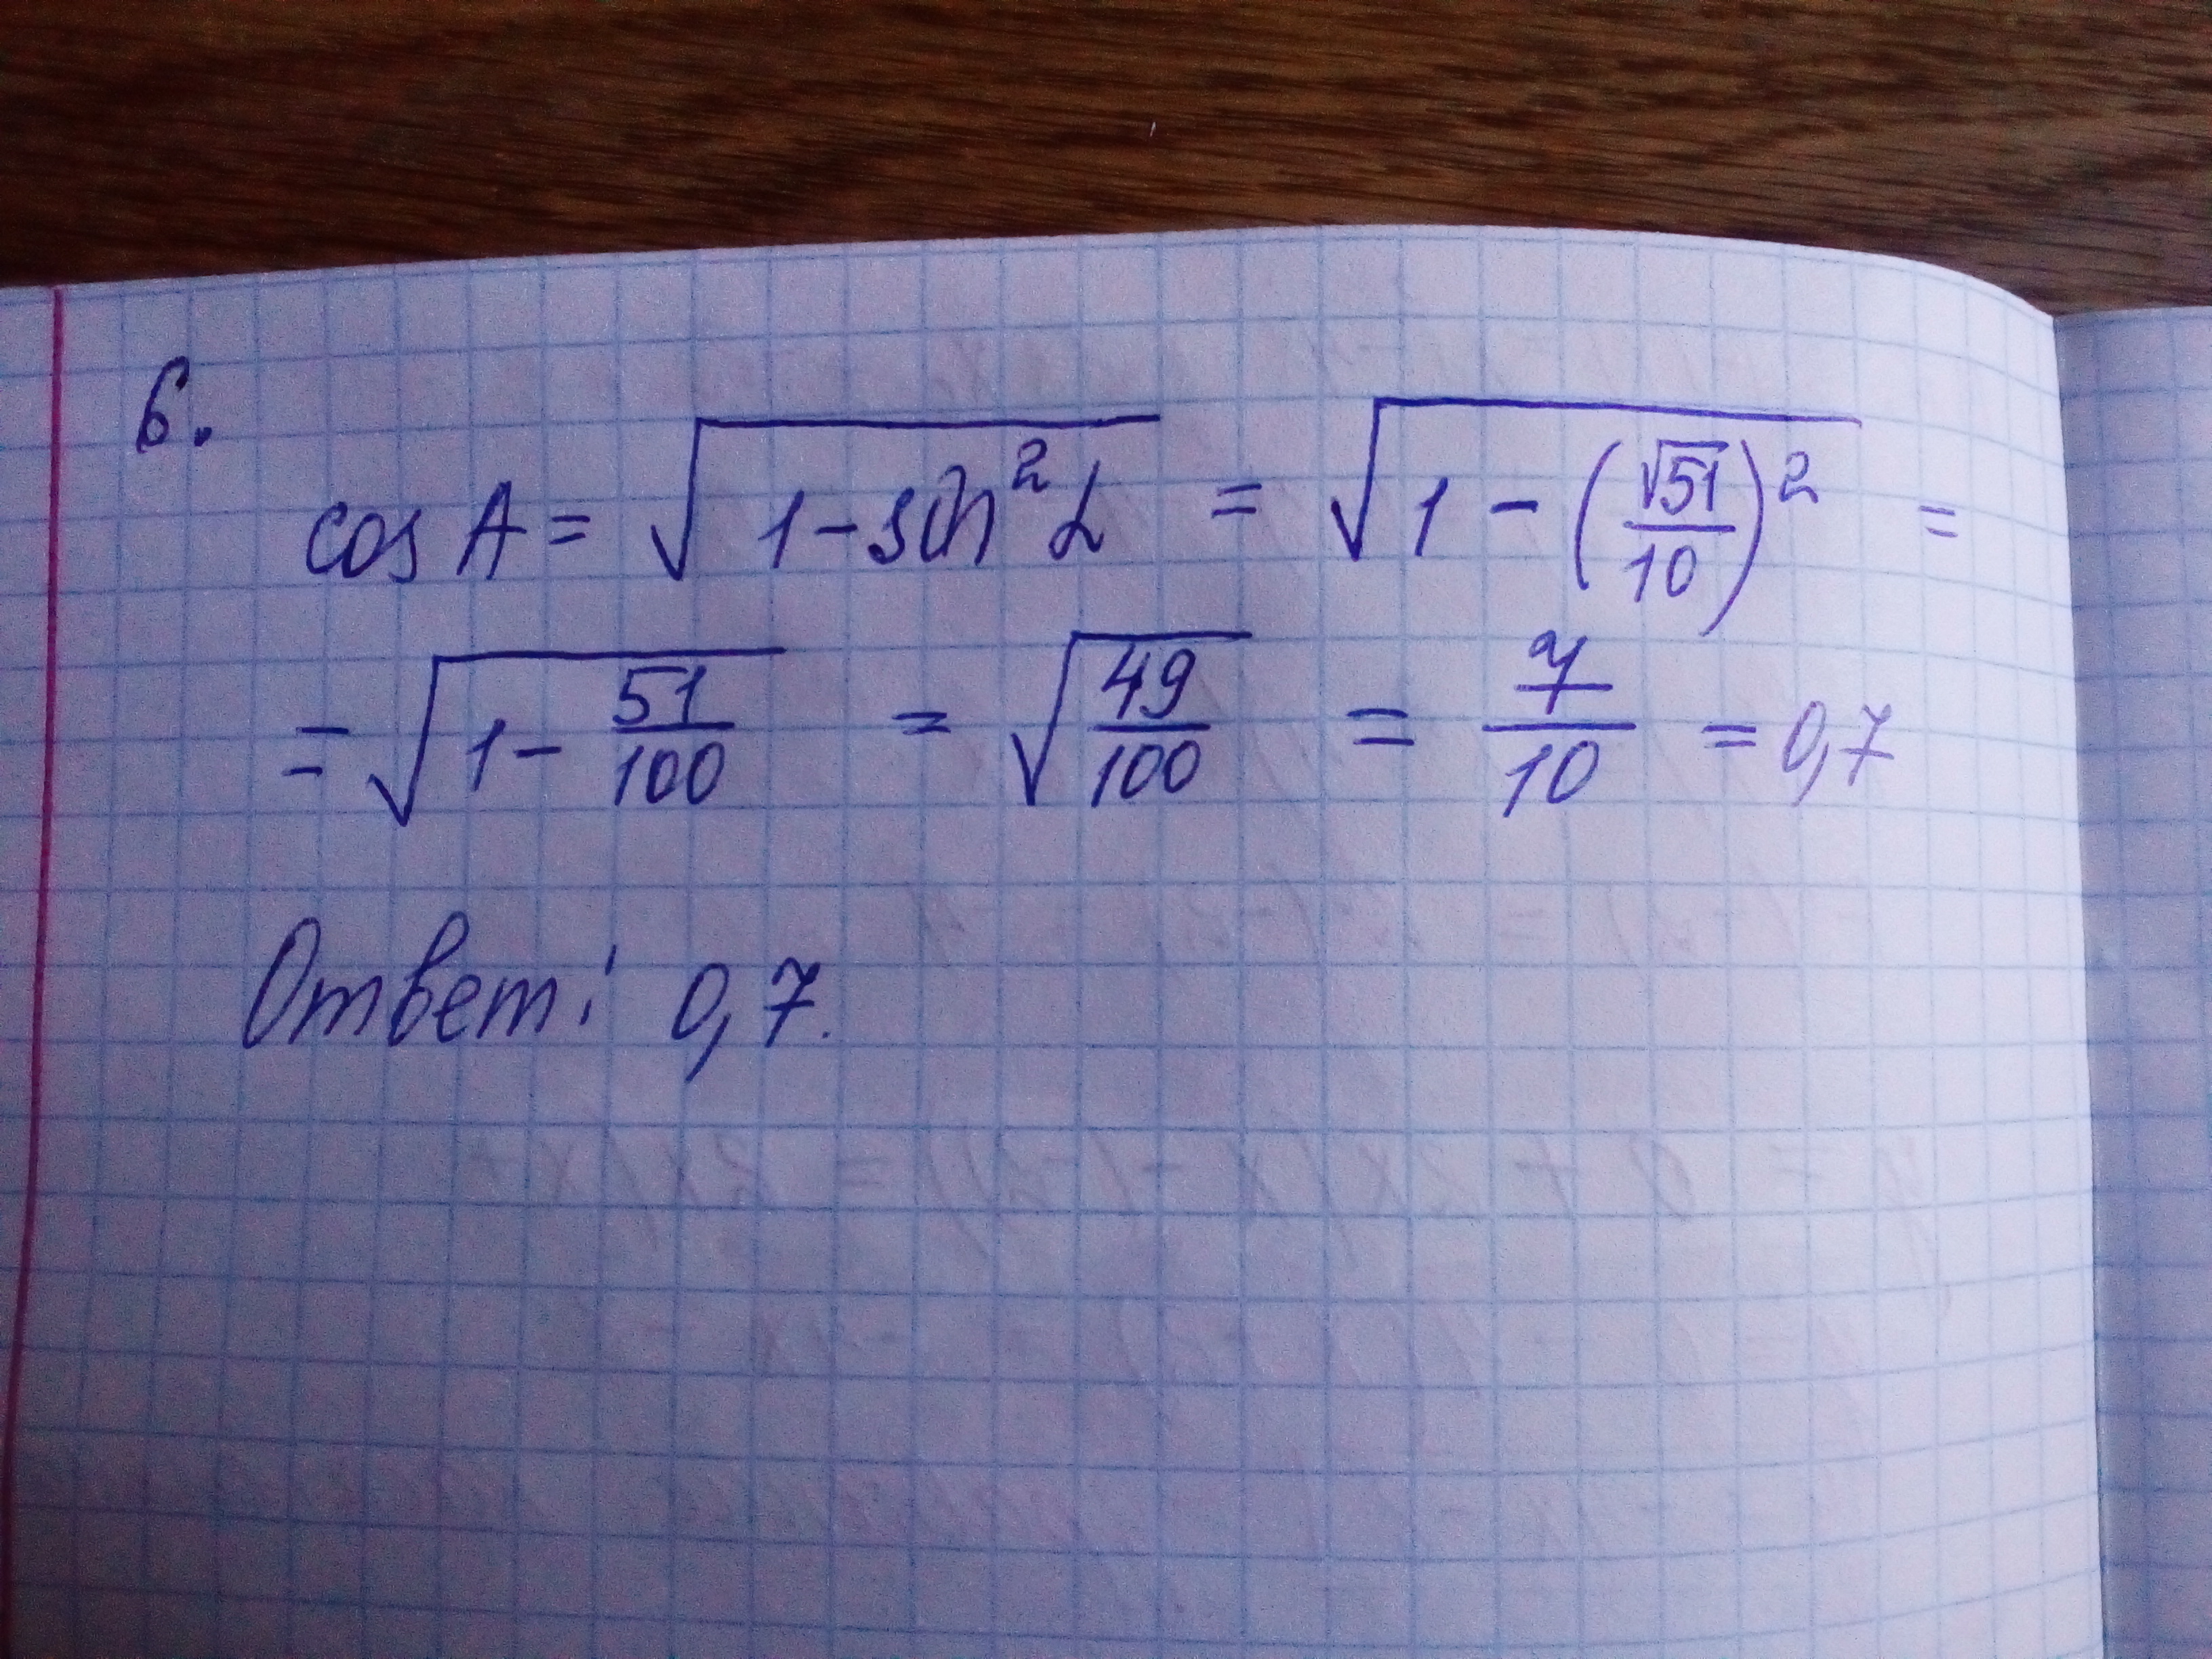 6.
cos A = √(1 - sin²α) = √(1 - (√51/10)²) =
= √(1 - 51/100) = √(49/100) = 7/10 = 0,7
Ответ: 0,7.